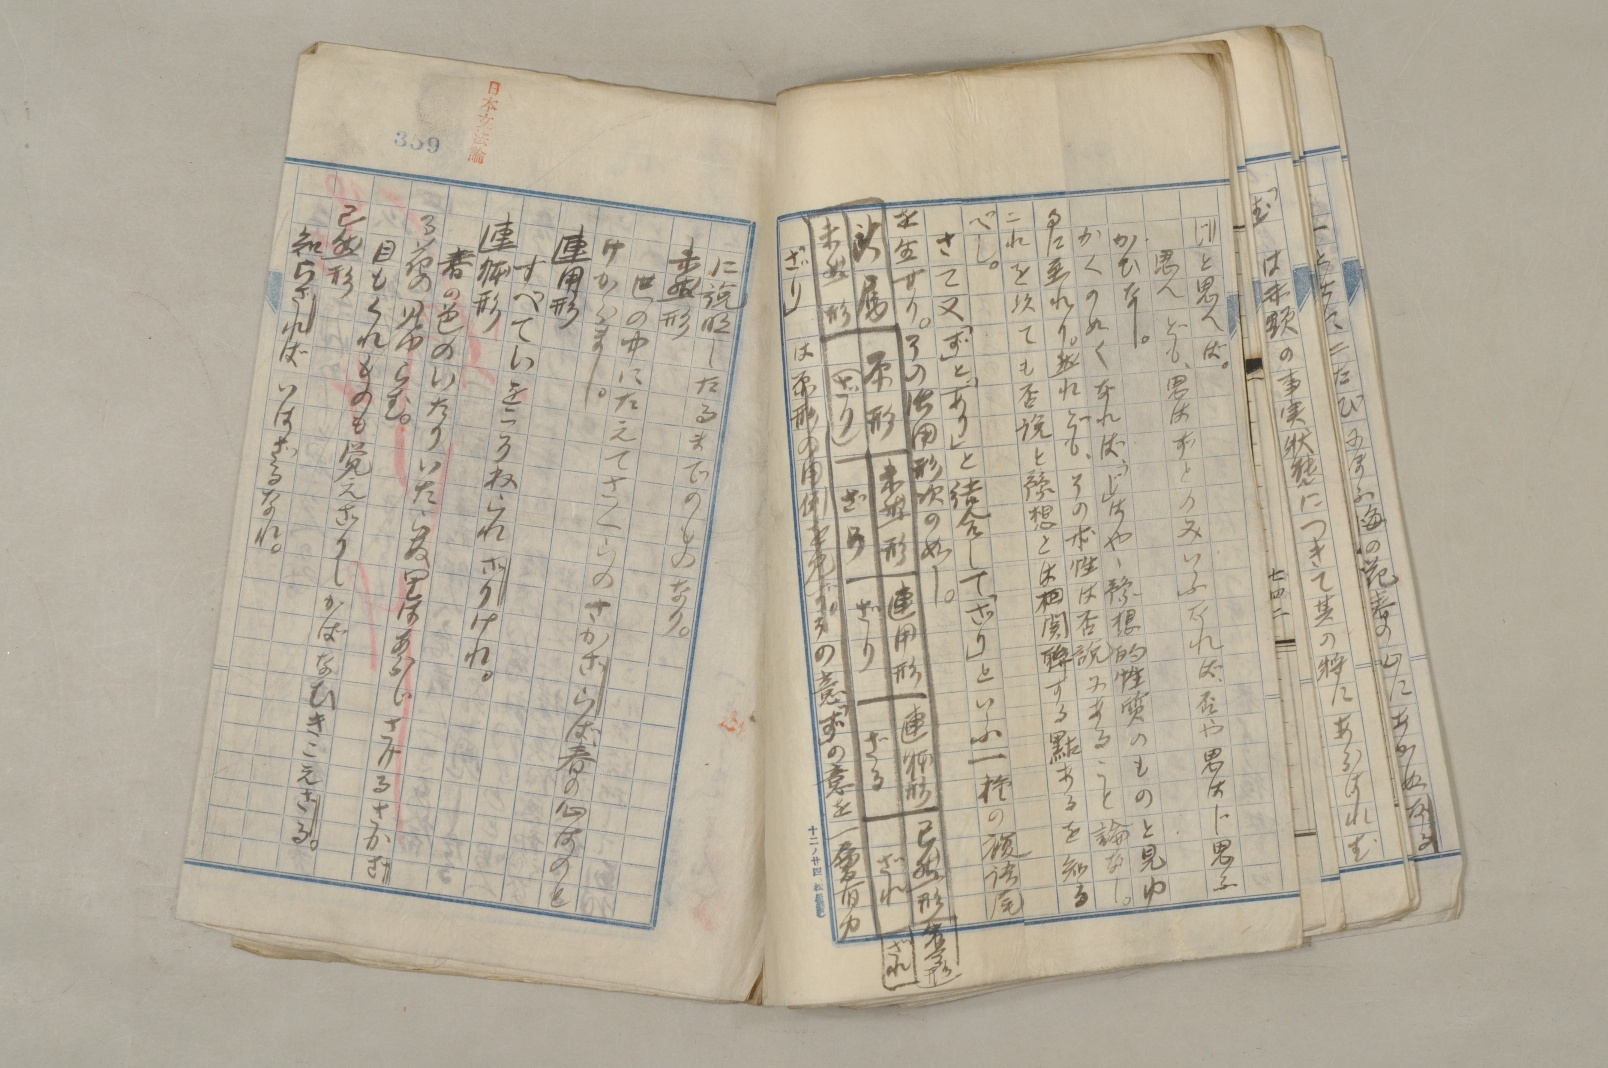 はと思へば。
思へども、思はずとのみいふなれば否や思はじ思ふ
かひなし。
かくのめくなれば、「じ」はや、豫想的性質のものと見ゆ
るに至れり。然れども、その本性は否説にあること論なし。
これを以ても否説と豫想とは相関聯する點あるを知る
べし。
さて又「ず」と「あり」と結合して「ざり」といふ一種の複語尾
を生ずり。その活用形次の如し。
所属 原形 未然形 連用形 連体形 已然形 命令形
未然形 (ざり) ざら ざり ざる ざれ ざれ
「ざり」は原形の用例を見ず。その意「ず」の意を一層有力
十二ノ廿四
に説明したるまでのものなり。
未然形
世の中にたえてさくらのさかざらば春の心はのと
けからまし。
連用形
すべていをこそねられざりけれ。
連体形
春の色のいたりいたらぬ里はあらじさけるさかざ
る花の見ゆらむ。
目もくれものも覚えざりしかばなむきこえざる。
已然形
知らざればいはざるなれ。
359
日本文法論
ず
は未顕の事実状態につきて其の将にあらはれむ
七四二